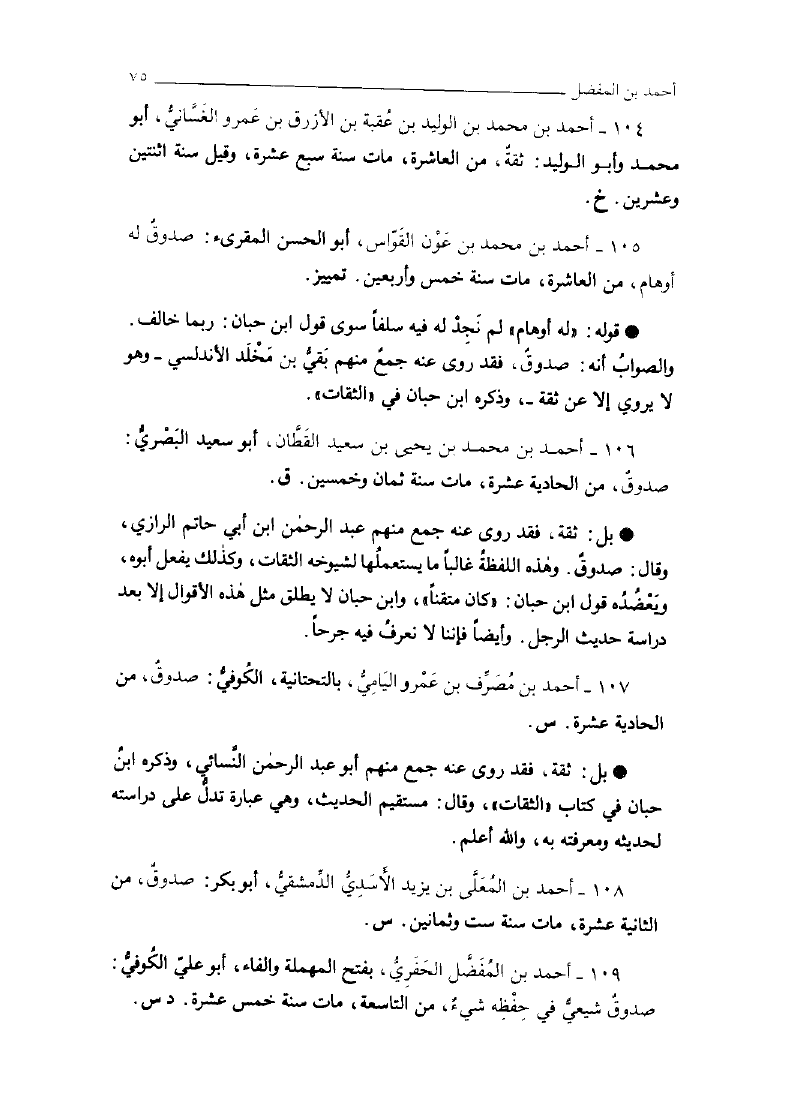 أحمد بن المفضل ٧٥
١٠٤ ـ أحمد بن محمد بن الوليد بن عُقبة بن الأزرق بن عَمرو الغَسَّانيُّ، أبو
محمد وأبو الوليد: ثقةٌ، من العاشرة، مات سنة سبع عشرة، وقيل سنة اثنتين
وعشرين. خ.
١٠٥ ـ أحمد بن محمد بن عَوْن القَوّاس، أبو الحسن المقرىء: صدوقٌ له
أوهام، من العاشرة، مات سنة خمس وأربعين. تمييز.
● قوله: «له أوهام» لم نَجِدْ له فيه سلفاً سوى قول ابن حبان: ربما خالف.
والصوابُ أنه: صدوقٌ، فقد روى عنه جمعٌ منهم بَقيُّ بن مَخْلَد الأندلسي ـ وهو
لا يروي إلا عن ثقة ـ، وذكره ابن حبان في «الثقات».
١٠٦ ـ أحمد بن محمد بن يحيى بن سعيد القَطَّان، أبو سعيد البَصْريُّ:
صدوقٌ، من الحادية عشرة، مات سنة ثمان وخمسين. ق.
● بل: ثقة، فقد روى عنه جمع منهم عبد الرحمٰن ابن أبي حاتم الرازي،
وقال: صدوقٌ. وهٰذه اللفظةُ غالباً ما يستعملُها لشيوخه الثقات، وكذلك يفعل أبوه،
ويَعْضُدُه قول ابن حبان: «كان متقناً»، وابن حبان لا يطلق مثل هٰذه الأقوال إلا بعد
دراسة حديث الرجل. وأيضاً فإننا لا نعرفُ فيه جرحاً.
١٠٧ ـ أحمد بن مُصَرِّف بن عَمْرو اليَامِيُّ، بالتحتانية، الكُوفيُّ: صدوقٌ، من
الحادية عشرة. س.
● بل: ثقة، فقد روى عنه جمع منهم أبو عبد الرحمٰن النَّسائي، وذكره ابنُ
حبان في كتاب «الثقات»، وقال: مستقيم الحديث، وهي عبارة تدلُّ على دراسته
لحديثه ومعرفته به، والله أعلم.
١٠٨ ـ أحمد بن المُعَلَّى بن يزيد الأَسَدِيُّ الدِّمشقيُّ، أبو بكر: صدوقٌ، من
الثانية عشرة، مات سنة ست وثمانين. س.
١٠٩ ـ أحمد بن المُفَضَّل الحَفَرِيُّ، بفتح المهملة والفاء، أبو عليّ الكُوفيُّ:
صدوقٌ شيعيٌّ في حِفْظِه شيءٌ، من التاسعة، مات سنة خمس عشرة. د س.